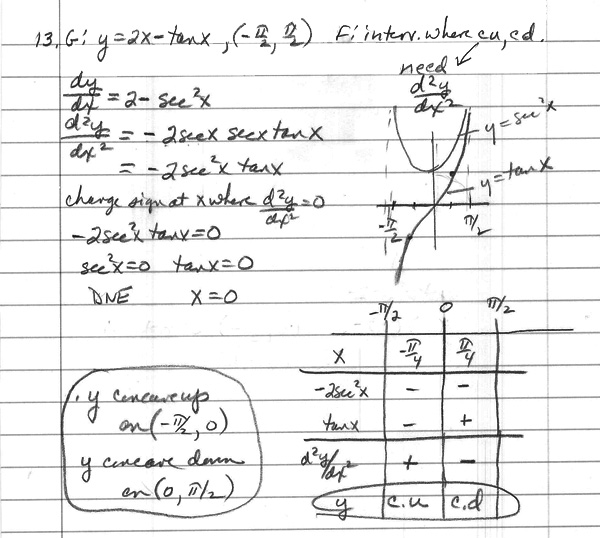 13. G: y = 2x - tanx, (-π/2, π/2) F: interv. where cu, cd.
need
d²y/dx²
dy/dx = 2 - sec²x
d²y/dx² = - 2secx secx tanx
= - 2sec²x tanx
change sign at x where d²y/dx² = 0
-2sec²x tanx = 0
sec²x = 0 tanx = 0
DNE x = 0
y = sec²x
y = tanx
-π/2 π/2
-π/2 0 π/2
x -π/4 π/4
-2sec²x - -
tanx - +
d²y/dx² + -
y c.u c.d
∴ y concave up
on (-π/2, 0)
y concave down
on (0, π/2)